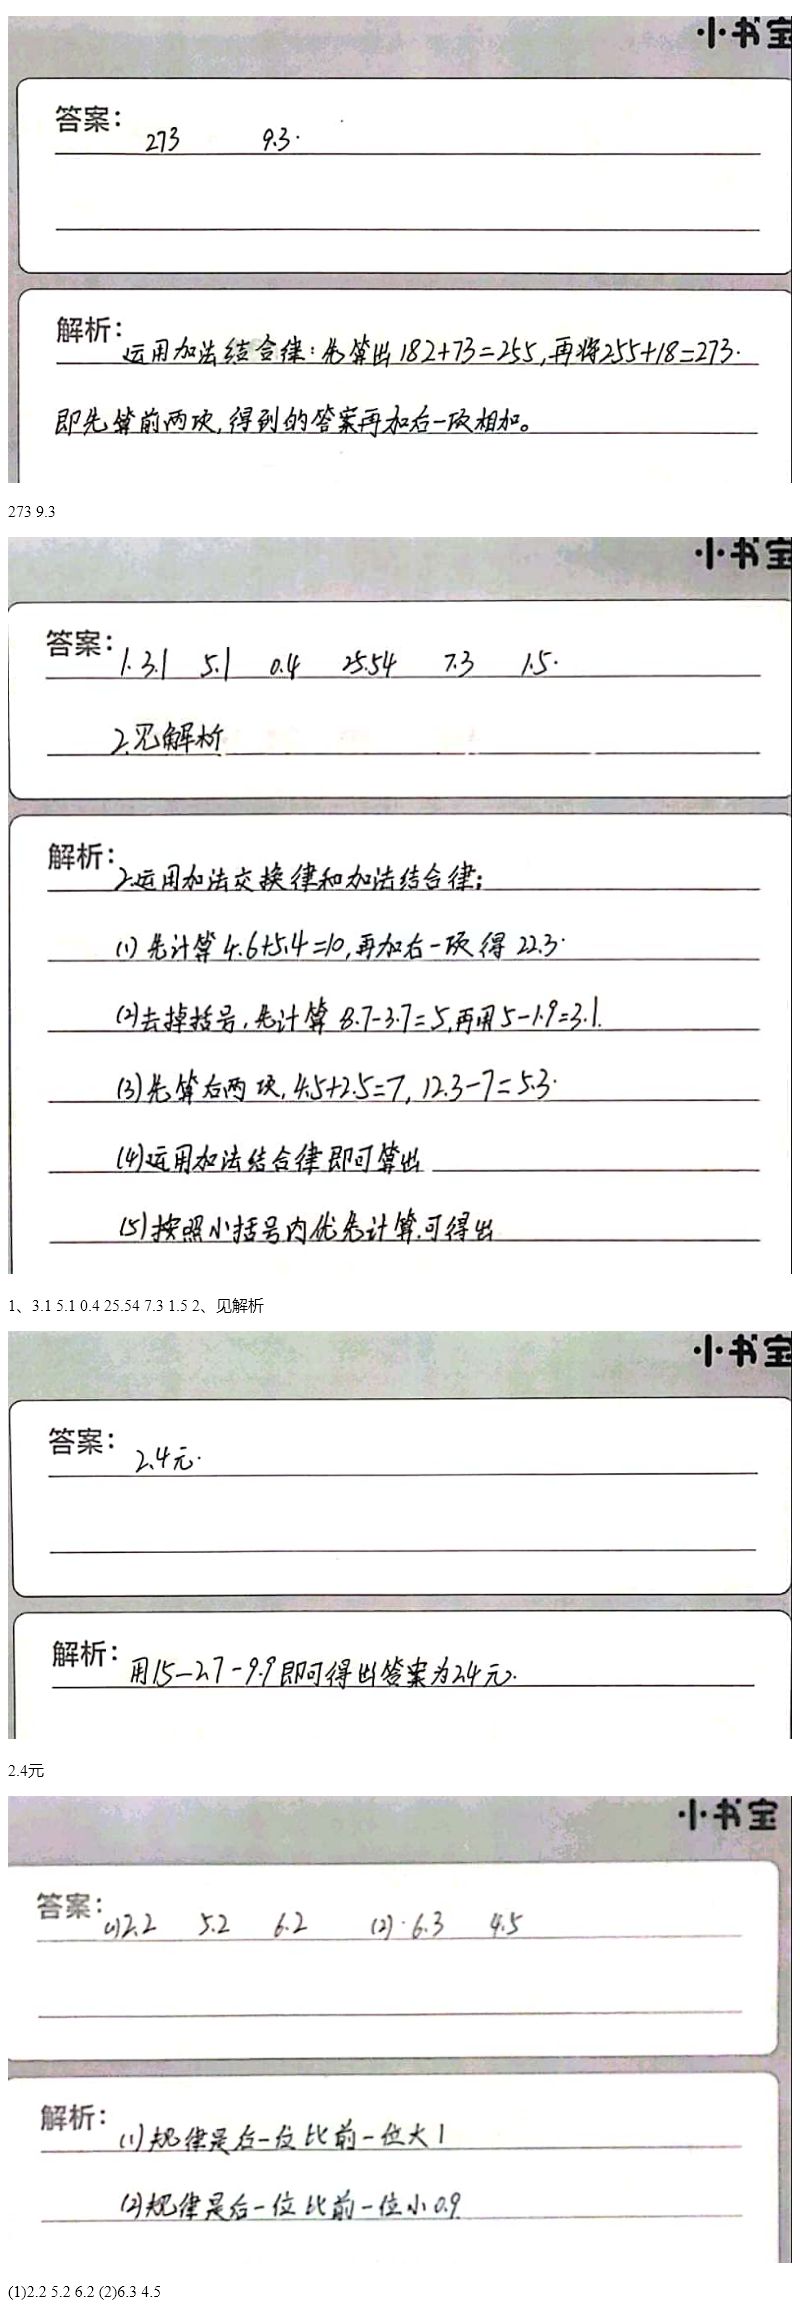 小书宝
答案：
273 9.3.
解析：
运用加法结合律：先算出182+73=255,再将255+18=273.
即先算前两项,得到的答案再加右一项相加。
273 9.3
小书宝
答案：
1. 3.1 5.1 0.4 25.54 7.3 1.5.
2.见解析
解析：
2.运用加法交换律和加法结合律；
(1)先计算4.6+5.4=10,再加右一项得22.3.
(2)去掉括号,先计算8.7-3.7=5,再用5-1.9=3.1.
(3)先算右两项,4.5+2.5=7, 12.3-7=5.3.
(4)运用加法结合律即可算出
(5)按照小括号内优先计算.可得出
1、3.1 5.1 0.4 25.54 7.3 1.5 2、见解析
小书宝
答案：
2.4元.
解析：
用15-2.7-9.9即可得出答案为2.4元.
2.4元
小书宝
答案：
(1)2.2 5.2 6.2 (2)·6.3 4.5
解析：
(1)规律是后一位比前一位大1
(2)规律是后一位比前一位小0.9
(1)2.2 5.2 6.2 (2)6.3 4.5